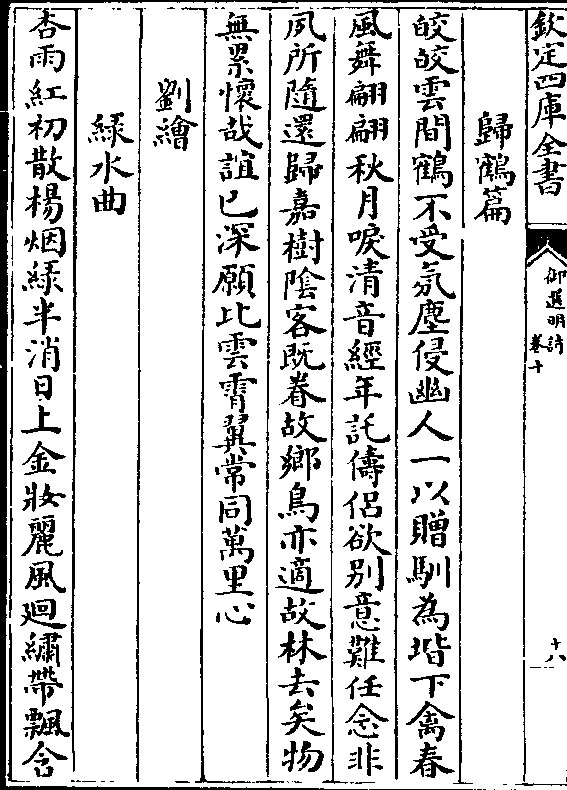 欽定四庫全書
御選明詩
卷十
十八
歸鶴篇
皎皎雲間鶴不受氛塵侵幽人一以贈馴為堦下禽春
風舞翩翩秋月唳清音經年託儔侶欲別意難任念非
夙所隨還歸嘉樹陰客既眷故鄉鳥亦適故林去矣物
無累懷哉誼已深願比雲霄翼常同萬里心
劉繪
緑水曲
杏雨紅初散楊烟緑半消日上金妝麗風廻繡帶飄含